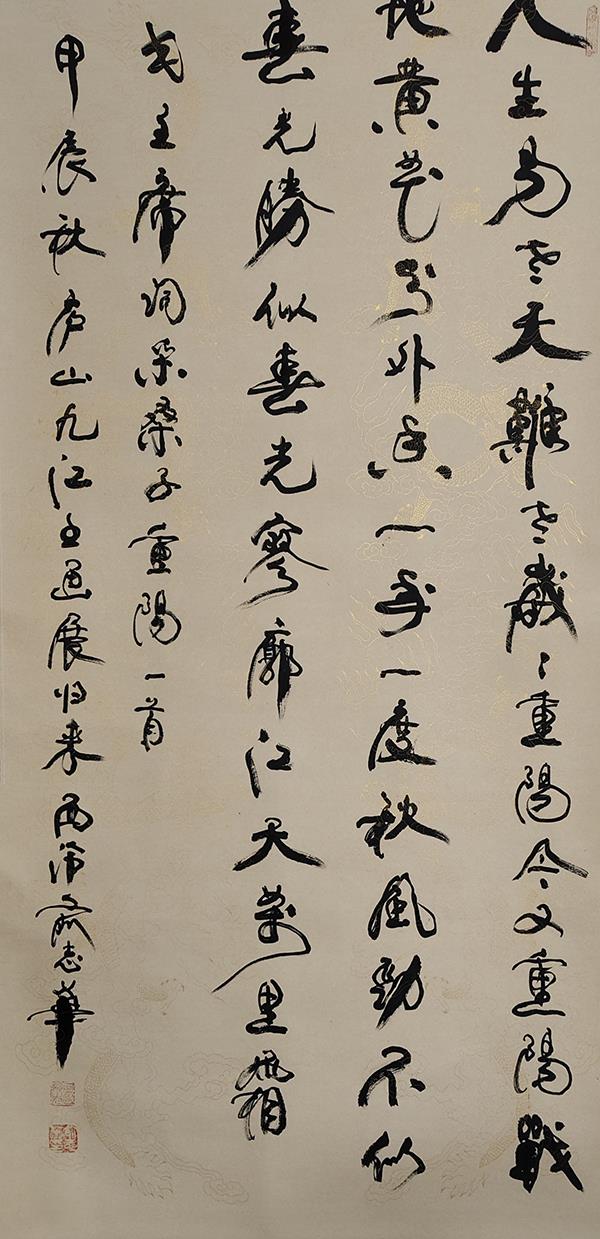 人生易老天難老歲〻重陽今又重陽戰
地黃花分外香一年一度秋風勁不似
春光勝似春光寥廓江天萬里霜
毛主席詞采桑子重陽一首
甲辰秋庐山九江展归来西泠志華